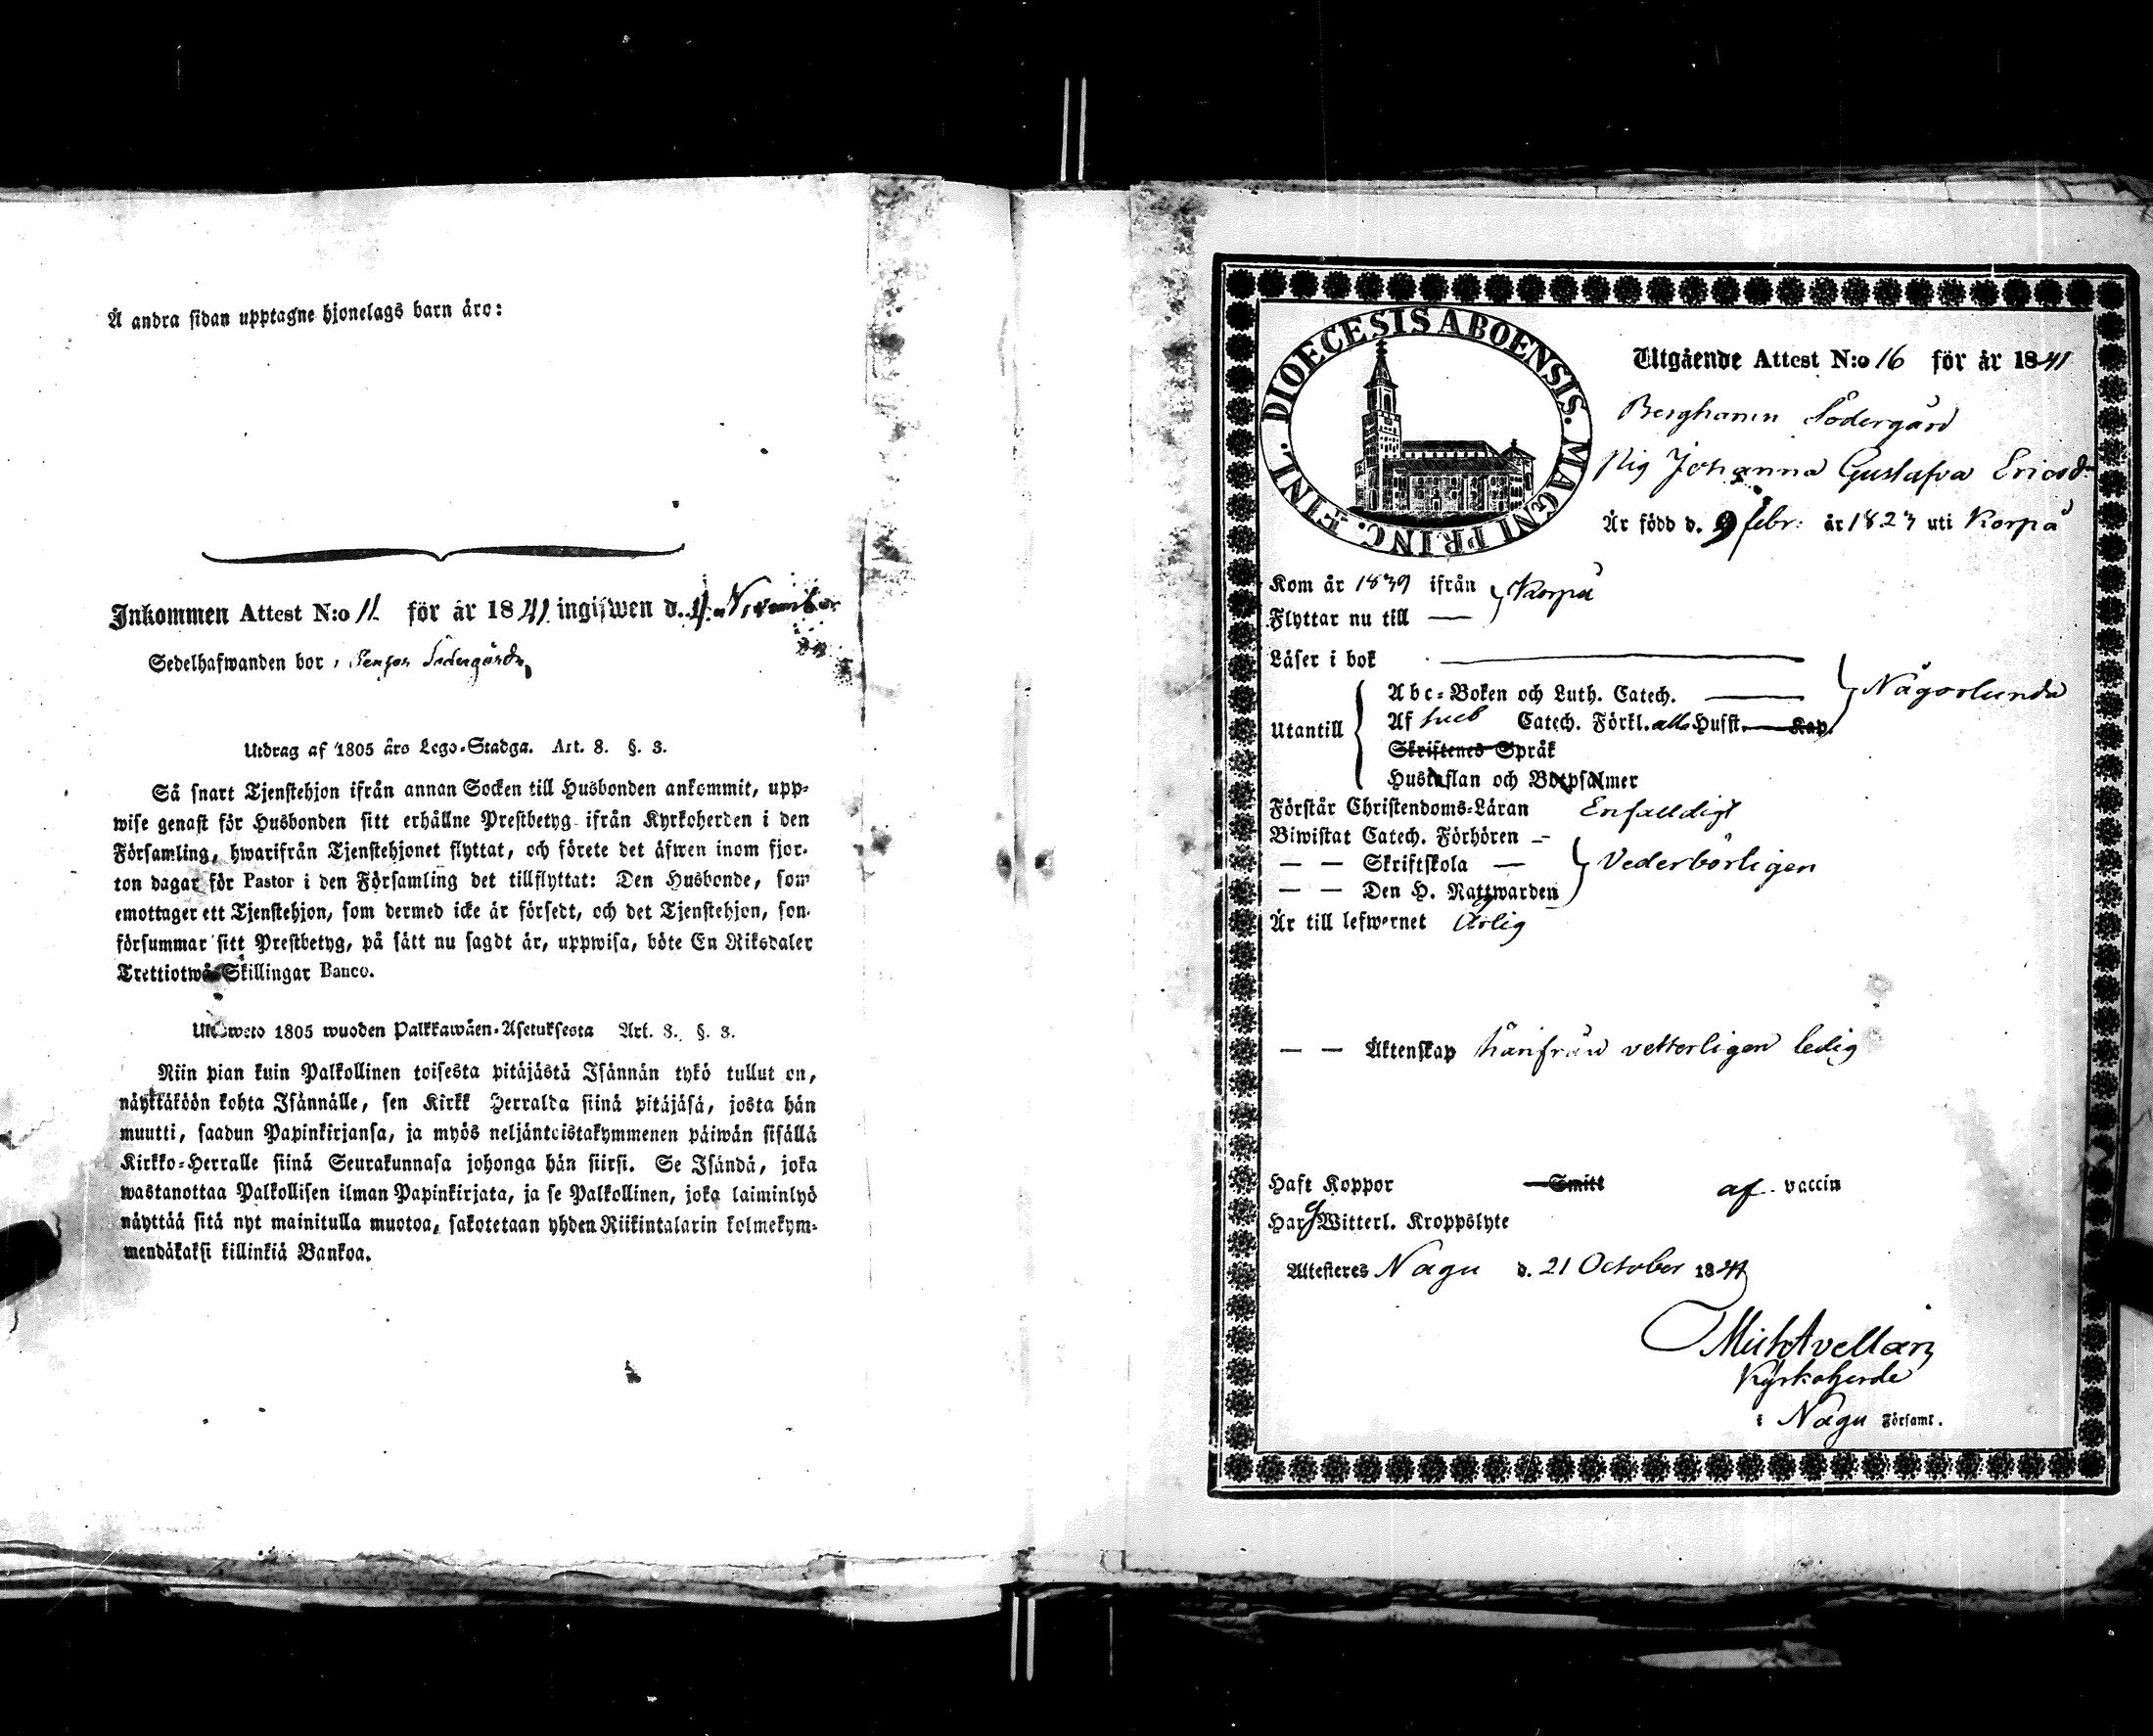 Å andra sidan upptagne hjonelags barn äro:
Inkommen Attest N:o 11 för år 1841 ingifwen d. 4 November
Sedelhafwanden bor i Södergårds
Utdrag af 1805 års Lego-Stadga. Art. 8. §. 3.
Så snart Tjenstehjon ifrån annan Socken till Husbonden ankommit, upp-
wise genast för Husbonden sitt erhållne Prestbetyg ifrån Kyrkoherden i den
Församling, hwarifrån Tjenstehjonet flyttat, och förete det äfwen inom fjor-
ton dagar för Pastor i den Församling det tillflyttat: Den Husbonde, som
emottager ett Tjenstehjon, som dermed icke är försedt, och det Tjenstehjon, som
försummar sitt Prestbetyg, på sätt nu sagdt är, uppwisa, böte En Riksdaler
Trettiotwå Skillingar Banco.
Ulosweto 1805 wuoden Palkkawäen-Asetuksesta Art. 8. §. 3.
Niin pian kuin Palkollinen toisesta pitäjästä Isännän tykö tullut on,
näyttäköön kohta Isännälle, sen Kirkk Herralda siinä pitäjäsä, josta hän
muutti, saadun Papinkirjansa, ja myös neljäntoistakymmenen päiwän sisällä
Kirkko-Herralle siinä Seurakunnasa johonga hän siirsi. Se Isändä, joka
wastanottaa Palkollisen ilman Papinkirjata, ja se Palkollinen, joka laiminlyö
näyttää sitä nyt mainitulla muotoa, sakotetaan yhden Riikintalarin kolmekym-
mendäkaksi killinkiä Bankoa.
DIOECESIS ABOENSIS. MAGNI PRINC. FINL.
Utgående Attest N:o 16 för år 1841
Berghamn Södergård
Pig Johanna Gustafva Ericsd:
Är född d. 9 febr: år 1823 uti Korpå
Kom år 1839 ifrån } Korpå
Flyttar nu till —
Läser i bok
Abc-Boken och Luth. Catech. — } Någorlunda
Utantill { Af Sveb Catech. Förkl. alla Husst. Kap.
Skriftenes Språk
Hustaflan och Botpsalmer
Förstår Christendoms-Läran Enfaldigt
Biwistat Catech. Förhören —
— — Skriftskola — } Vederbörligen
— — Den H. Nattwarden
Är till lefwernet Ärlig
— — Äktenskap härifrån vetterligen ledig
Haft Koppor Smitt af vaccin
Har ej Witterl. Kroppslyte
Attesteres Nagu d. 21 October 1841
Mich Avellan
Kyrkoherde
i Nagu Församl.